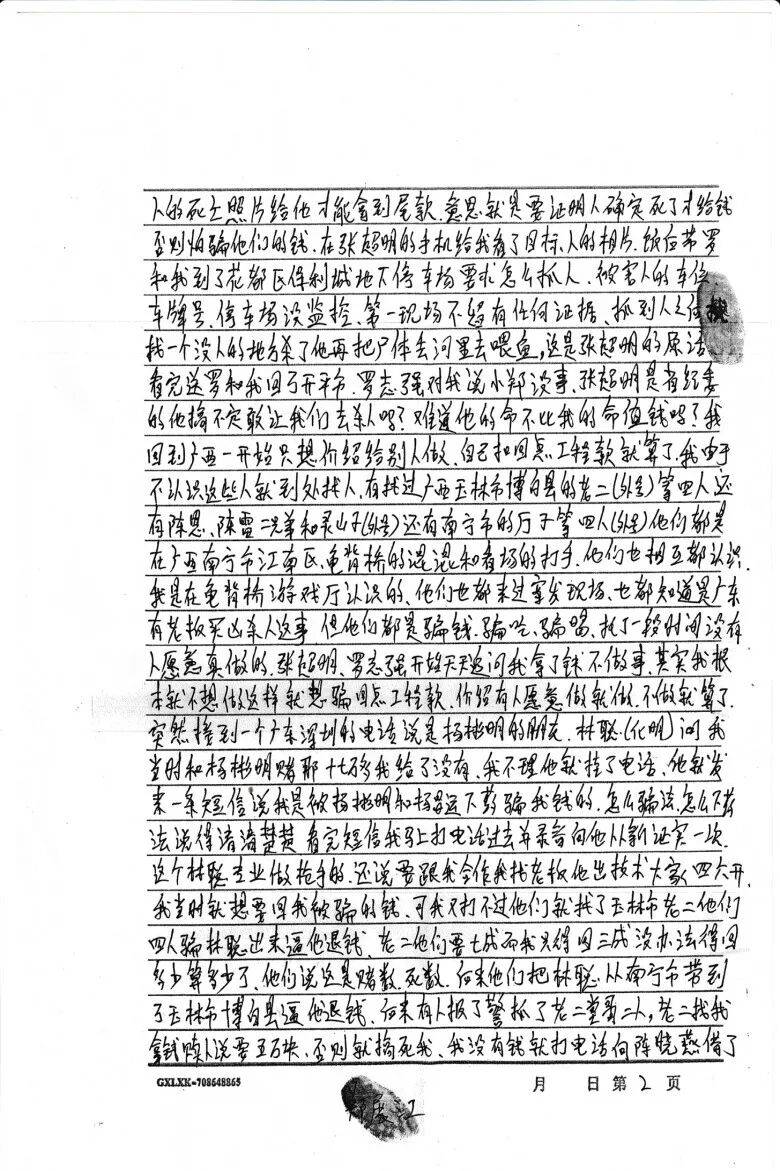 人的死亡照片给他才能拿到尾款.意思就是要证明人确定死了才给钱
否则怕骗他们的钱.在张超明的手机给我看了目标人的相片.饭后带罗
和我到了花都区保利城地下停车场要求怎么抓人.被害人的车位.
车牌号.停车场没监控.第一现场不留有任何证据.抓到人之后
找一个没人的地方杀了他再把尸体丢河里去喂鱼,这是张超明的原话.
看完送罗和我回石开宾市.罗志强对我说小郑没事.张超明是省纪委
的他搞不定敢让我们去杀人吗?难道他的命不比我的命值钱吗?我
回到广西一开始只想介绍给别人做.自己扣回点工程款就算了.我由于
不认识这些人就到处找人.有找过广西玉林市博白县的老二(外号)等四人还
有陈思.陈雷二兄弟和灵山子(外号)还有南宁市的厅子等四人(外号)他们都是
在广西南宁市江南区龟背桥的混混和看场的打手.他们也相互都认识.
我是在龟背桥游戏厅认识的.他们也都来过案发现场.也都知道是广东
有老板买凶杀人这事.但他们都是骗钱.骗吃.骗喝.托了一段时间没有
人愿意真做的.张超明.罗志强开始天天追问我拿了钱不做事.其实我根
本就不想做这样就想骗回点工程款.介绍有人愿意做就做.不做就算了.
突然接到一个广东深圳的电话说是杨彬明的朋友.林聪.(化明)问我
当时和杨彬明赌那十七万多我给了没有.我不理他就挂了电话.他就发
来一条短信说我是被杨彬明和杨昌运下药骗我钱的.怎么骗法.怎么下药
法说得清清楚楚.看完短信我马上打电话过去并录音向他从新证实一次.
这个林聪专业做枪手的.还说要跟我合作我找老板他出技术大家四六开.
我当时就想要回我被骗的钱.可我又打不过他们就找了玉林市老二他们
四人骗林聪出来逼他退钱.老二他们要七成而我只得回三成没办法得回
多少算多少了.他们说这是赌数.死数.后来他们把林聪.从南宁市带到
了玉林市博白县逼他退钱.后来有人报了警抓了老二堂哥二人,老二找我
拿钱赎人说要五万块.否则就搞死我.我没有钱就打电话向陈晓燕借了
GXLXK=708648865
月 日 第 2 页